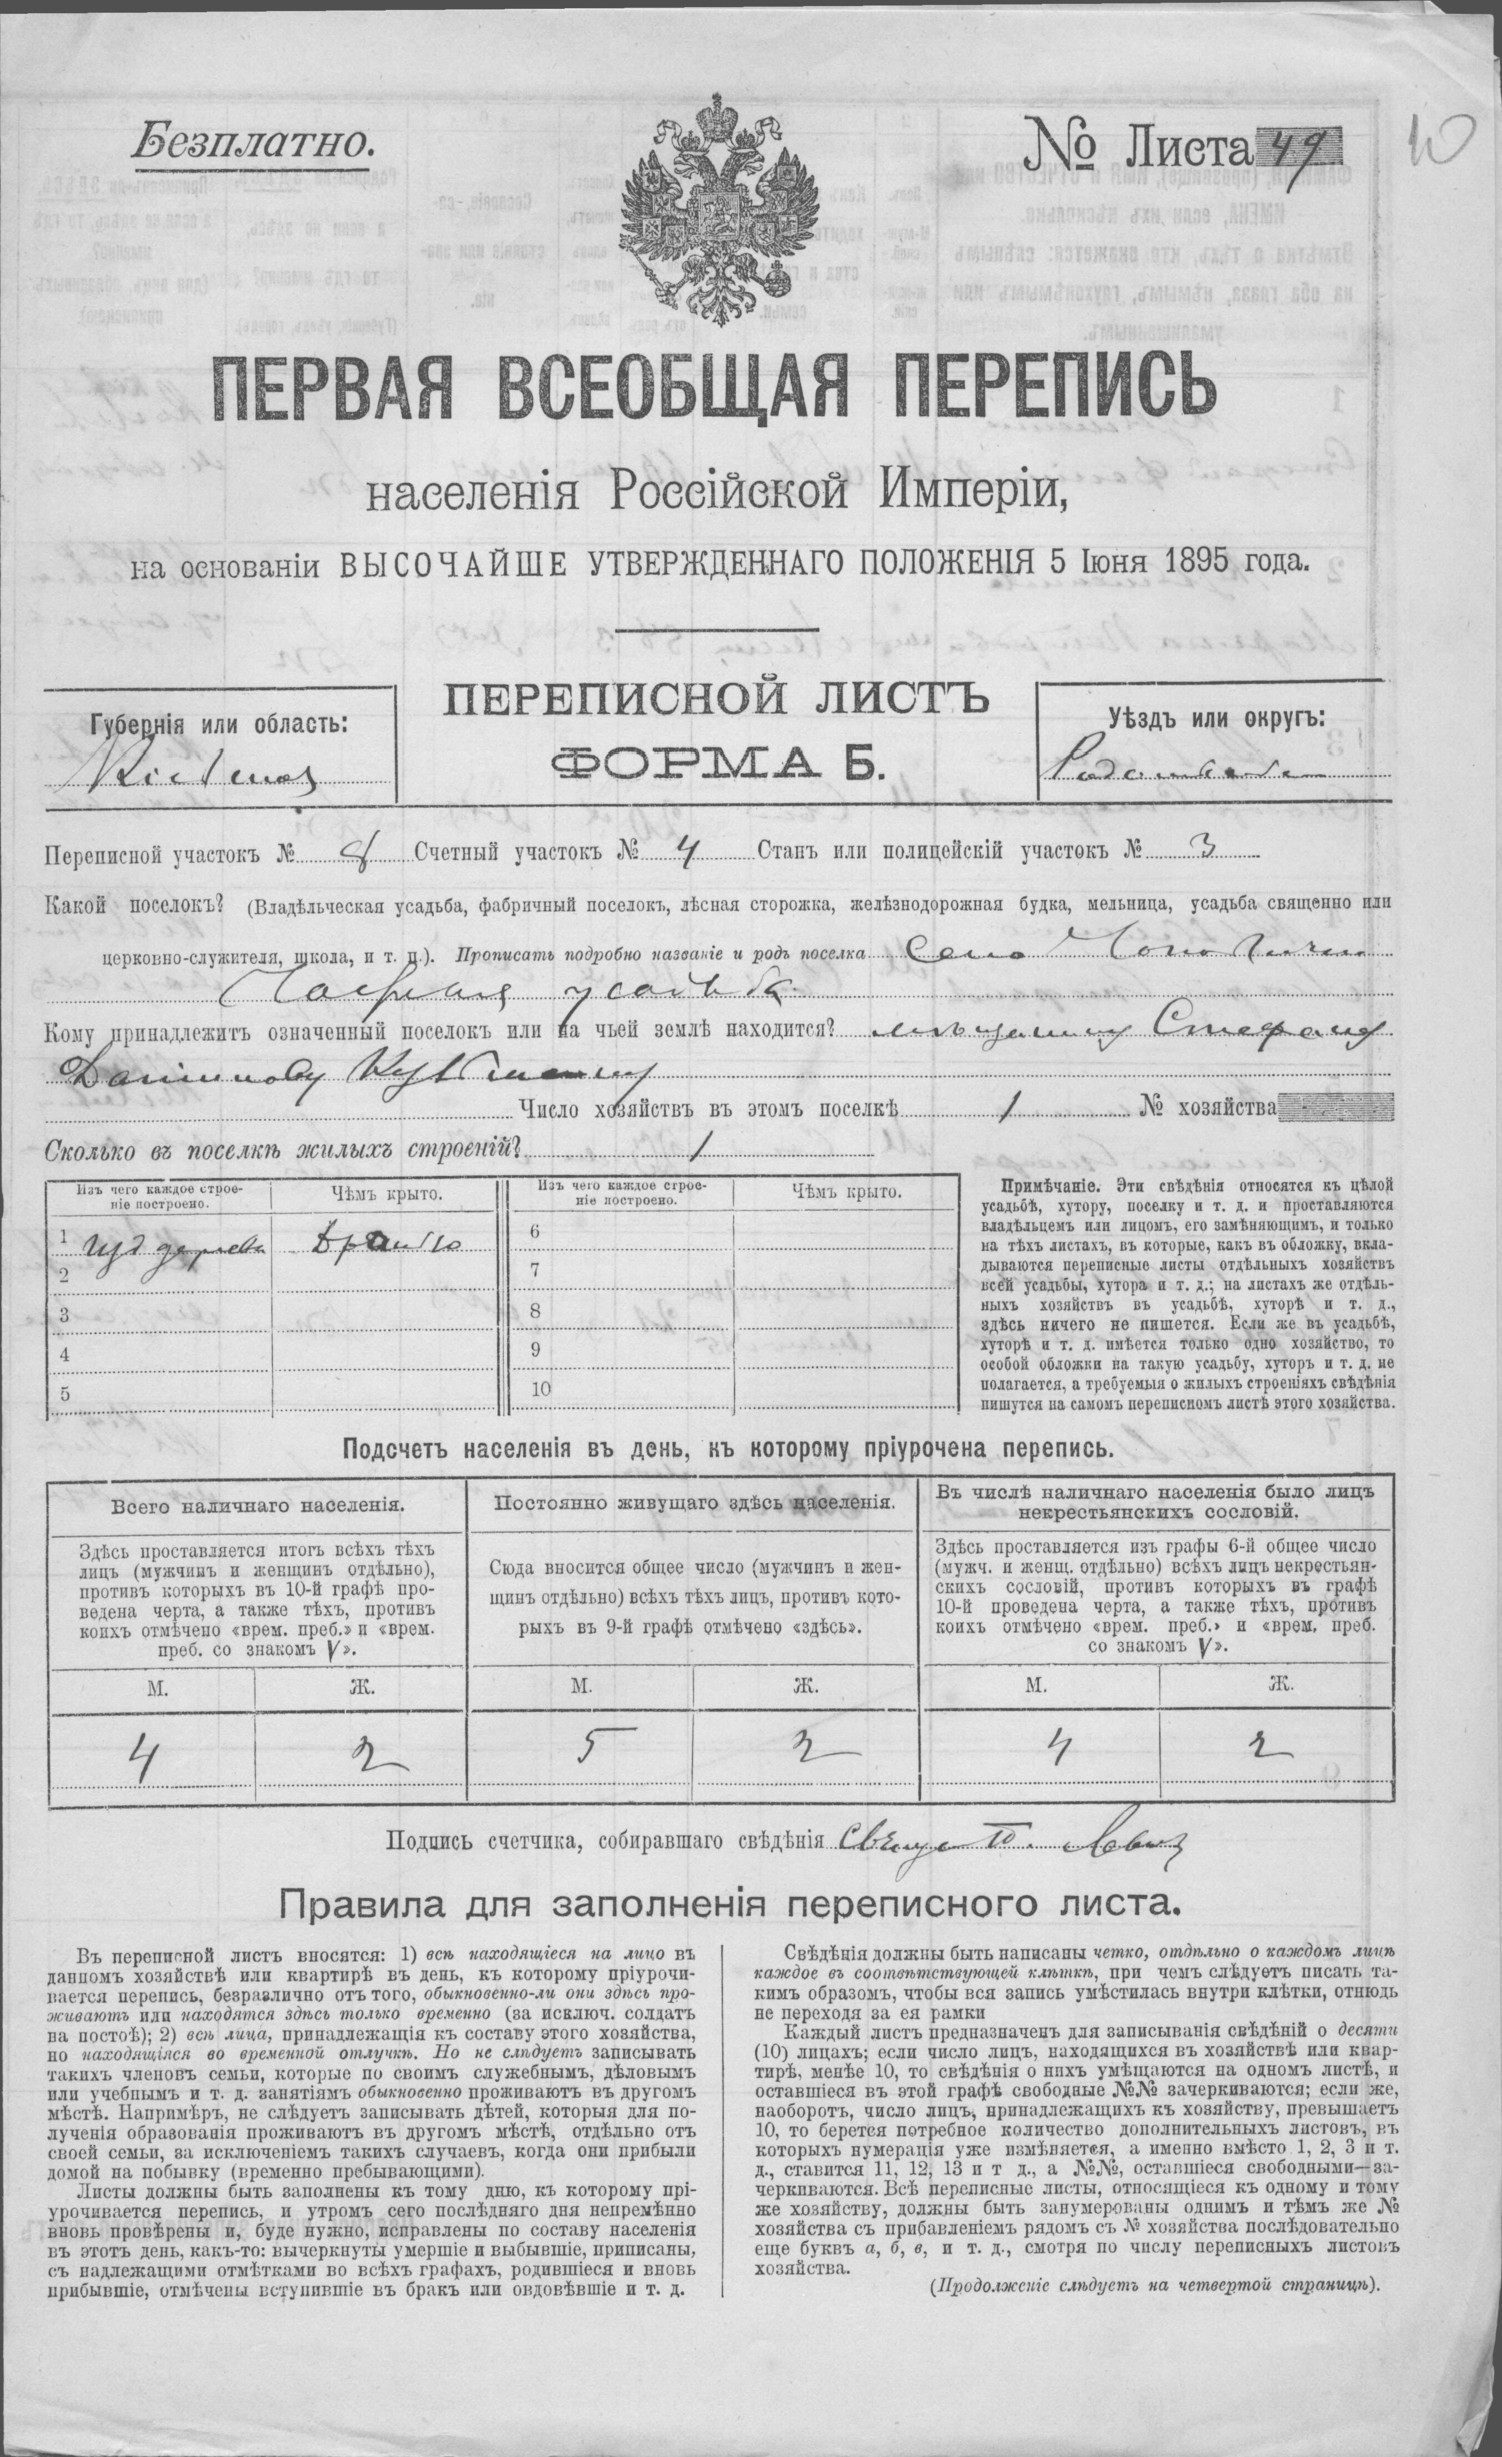 Безплатно.
№ Листа 49
10
ПЕРВАЯ ВСЕОБЩАЯ ПЕРЕПИСЬ
населенія Россійской Имперіи,
на основаніи ВЫСОЧАЙШЕ УТВЕРЖДЕННАГО ПОЛОЖЕНІЯ 5 Іюня 1895 года.
ПЕРЕПИСНОЙ ЛИСТЪ
ФОРМА Б.
Губернія или область:
Кіевская
Уѣздъ или округъ:
Радомысльск
Переписной участокъ № 8 Счетный участокъ № 4 Станъ или полицейскій участокъ № 3
Какой поселокъ? (Владѣльческая усадьба, фабричный поселокъ, лѣсная сторожка, желѣзнодорожная будка, мельница, усадьба священно или
церковно-служителя, школа, и т. п.). Прописать подробно названіе и родъ поселка село Чоповичи
усадьба
Кому принадлежитъ означенный поселокъ или на чьей землѣ находится? мѣщанину Стефану
Даниилову
Число хозяйствъ въ этомъ поселкѣ 1 № хозяйства
Сколько въ поселкѣ жилыхъ строеній? 1
Изъ чего каждое строе-
ніе построено.
Чѣмъ крыто.
Изъ чего каждое строе-
ніе построено.
Чѣмъ крыто.
1 изъ дерева дранью 6
2 7
3 8
4 9
5 10
Примѣчаніе. Эти свѣдѣнія относятся къ цѣлой
усадьбѣ, хутору, поселку и т. д. и проставляются
владѣльцемъ или лицомъ, его замѣняющимъ, и только
на тѣхъ листахъ, въ которые, какъ въ обложку, вкла-
дываются переписные листы отдѣльныхъ хозяйствъ
всей усадьбы, хутора и т. д.; на листахъ же отдѣль-
ныхъ хозяйствъ въ усадьбѣ, хуторѣ и т. д.,
здѣсь ничего не пишется. Если же въ усадьбѣ,
хуторѣ и т. д. имѣется только одно хозяйство, то
особой обложки на такую усадьбу, хуторъ и т. д. не
полагается, а требуемыя о жилыхъ строеніяхъ свѣдѣнія
пишутся на самомъ переписномъ листѣ этого хозяйства.
Подсчетъ населенія въ день, къ которому пріурочена перепись.
Всего наличнаго населенія.
Здѣсь проставляется итогъ всѣхъ тѣхъ
лицъ (мужчинъ и женщинъ отдѣльно),
противъ которыхъ въ 10-й графѣ про-
ведена черта, а также тѣхъ, противъ
коихъ отмѣчено «врем. преб.» и «врем.
преб. со знакомъ V».
М. Ж.
4 2
Постоянно живущаго здѣсь населенія.
Сюда вносится общее число (мужчинъ и жен-
щинъ отдѣльно) всѣхъ тѣхъ лицъ, противъ кото-
рыхъ въ 9-й графѣ отмѣчено «здѣсь».
М. Ж.
5 2
Въ числѣ наличнаго населенія было лицъ
некрестьянскихъ сословій.
Здѣсь проставляется изъ графы 6-й общее число
(мужч. и женщ. отдѣльно) всѣхъ лицъ некрестьян-
скихъ сословій, противъ которыхъ въ графѣ
10-й проведена черта, а также тѣхъ, противъ
коихъ отмѣчено «врем. преб.» и «врем. преб.
со знакомъ V».
М. Ж.
4 2
Подпись счетчика, собиравшаго свѣдѣнія
Правила для заполненія переписного листа.
Въ переписной листъ вносятся: 1) всѣ находящіеся на лицо въ
данномъ хозяйствѣ или квартирѣ въ день, къ которому пріурочи-
вается перепись, безразлично отъ того, обыкновенно-ли они здѣсь про-
живаютъ или находятся здѣсь только временно (за исключ. солдатъ
на постоѣ); 2) всѣ лица, принадлежащія къ составу этого хозяйства,
но находящіяся во временной отлучкѣ. Но не слѣдуетъ записывать
такихъ членовъ семьи, которые по своимъ служебнымъ, дѣловымъ
или учебнымъ и т. д. занятіямъ обыкновенно проживаютъ въ другомъ
мѣстѣ. Напримѣръ, не слѣдуетъ записывать дѣтей, которыя для по-
лученія образованія проживаютъ въ другомъ мѣстѣ, отдѣльно отъ
своей семьи, за исключеніемъ такихъ случаевъ, когда они прибыли
домой на побывку (временно пребывающими).
Листы должны быть заполнены къ тому дню, къ которому прі-
урочивается перепись, и утромъ сего послѣдняго дня непремѣнно
вновь провѣрены и, буде нужно, исправлены по составу населенія
въ этотъ день, какъ-то: вычеркнуты умершіе и выбывшіе, приписаны,
съ надлежащими отмѣтками во всѣхъ графахъ, родившіеся и вновь
прибывшіе, отмѣчены вступившіе въ бракъ или овдовѣвшіе и т. д.
Свѣдѣнія должны быть написаны четко, отдѣльно о каждомъ лицѣ
каждое въ соотвѣтствующей клѣткѣ, при чемъ слѣдуетъ писать та-
кимъ образомъ, чтобы вся запись умѣстилась внутри клѣтки, отнюдь
не переходя за ея рамки
Каждый листъ предназначенъ для записыванія свѣдѣній о десяти
(10) лицахъ; если число лицъ, находящихся въ хозяйствѣ или квар-
тирѣ, менѣе 10, то свѣдѣнія о нихъ умѣщаются на одномъ листѣ, и
оставшіеся въ этой графѣ свободные №№ зачеркиваются; если же,
наоборотъ, число лицъ, принадлежащихъ къ хозяйству, превышаетъ
10, то берется потребное количество дополнительныхъ листовъ, въ
которыхъ нумерація уже измѣняется, а именно вмѣсто 1, 2, 3 и т.
д., ставится 11, 12, 13 и т д., а №№, оставшіеся свободными—за-
черкиваются. Всѣ переписные листы, относящіеся къ одному и тому
же хозяйству, должны быть занумерованы однимъ и тѣмъ же №
хозяйства съ прибавленіемъ рядомъ съ № хозяйства послѣдовательно
еще буквъ а, б, в, и т. д., смотря по числу переписныхъ листовъ
хозяйства.
(Продолженіе слѣдуетъ на четвертой страницѣ).